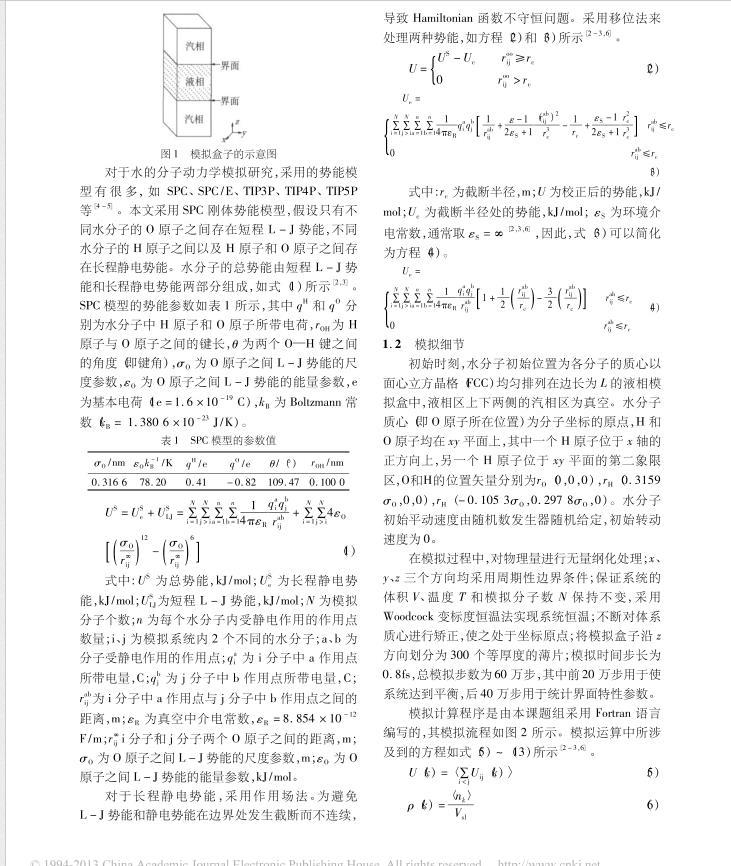 汽相
界面
液相
界面
汽相
z
y
x
图1 模拟盒子的示意图
对于水的分子动力学模拟研究,采用的势能模
型有很多,如 SPC、SPC/E、TIP3P、TIP4P、TIP5P
等[4-5]。本文采用SPC刚体势能模型,假设只有不
同水分子的O原子之间存在短程L-J势能,不同
水分子的H原子之间以及H原子和O原子之间存
在长程静电势能。水分子的总势能由短程L-J势
能和长程静电势能两部分组成,如式(1)所示[2,3]。
SPC模型的势能参数如表1所示,其中qH和qO分
别为水分子中H原子和O原子所带电荷,rOH为H
原子与O原子之间的键长,θ为两个O—H键之间
的角度(即键角),σO为O原子之间L-J势能的尺
度参数,εO为O原子之间L-J势能的能量参数,e
为基本电荷(1e=1.6×10-19 C),kB为Boltzmann常
数(kB=1.380 6×10-23 J/K)。
表1 SPC模型的参数值
σO/nm εOkB-1/K qH/e qO/e θ/(°) rOH/nm
0.316 6 78.20 0.41 -0.82 109.47 0.100 0
US=UeS+ULJS=∑i=1N∑j>iN∑a=1n∑b=1n 1/4πεR qiaqjb/rijab+∑i=1N∑j>iN4εO
[(σO/rijoo)12-(σO/rijoo)6] (1)
式中:US为总势能,kJ/mol;UeS为长程静电势
能,kJ/mol;ULJS为短程L-J势能,kJ/mol;N为模拟
分子个数;n为每个水分子内受静电作用的作用点
数量;i、j为模拟系统内2个不同的水分子;a、b为
分子受静电作用的作用点;qia为i分子中a作用点
所带电量,C;qjb为j分子中b作用点所带电量,C;
rijab为i分子中a作用点与j分子中b作用点之间的
距离,m;εR为真空中介电常数,εR=8.854×10-12
F/m;rijoo i分子和j分子两个O原子之间的距离,m;
σO为O原子之间L-J势能的尺度参数,m;εO为O
原子之间L-J势能的能量参数,kJ/mol。
对于长程静电势能,采用作用场法。为避免
L-J势能和静电势能在边界处发生截断而不连续,
导致Hamiltonian函数不守恒问题。采用移位法来
处理两种势能,如方程(2)和(3)所示[2-3,6]。
U={US-Uc rijoo≥rc
0 rijoo>rc (2)
Ue=
{∑i=1N∑j>iN∑a=1n∑b=1n 1/4πεR qiaqjb[1/rijab+εS-1/2εS+1 (rijab)2/rc3-1/rc+εS-1/2εS+1 rc2/rc3] rijab≤rc
0 rijab≤rc
(3)
式中:rc为截断半径,m;U为校正后的势能,kJ/
mol;Uc为截断半径处的势能,kJ/mol;εS为环境介
电常数,通常取εS=∞[2,3,6],因此,式(3)可以简化
为方程(4)。
Ue=
{∑i=1N∑j>iN∑a=1n∑b=1n 1/4πεR qiaqjb/rijab[1+1/2(rijab/rc)-3/2(rijab/rc)] rijab≤rc
0 rijab≤rc (4)
1.2 模拟细节
初始时刻,水分子初始位置为各分子的质心以
面心立方晶格(FCC)均匀排列在边长为L的液相模
拟盒中,液相区上下两侧的汽相区为真空。水分子
质心(即O原子所在位置)为分子坐标的原点,H和
O原子均在xy平面上,其中一个H原子位于x轴的
正方向上,另一个H原子位于xy平面的第二象限
区,O和H的位置矢量分别为rO(0,0,0),rH(0.3159
σO,0,0),rH(-0.105 3σO,0.297 8σO,0)。水分子
初始平动速度由随机数发生器随机给定,初始转动
速度为0。
在模拟过程中,对物理量进行无量纲化处理;x、
y、z三个方向均采用周期性边界条件;保证系统的
体积V、温度T和模拟分子数N保持不变,采用
Woodcock变标度恒温法实现系统恒温;不断对体系
质心进行矫正,使之处于坐标原点;将模拟盒子沿z
方向划分为300个等厚度的薄片;模拟时步长为
0.8fs,总模拟步数为60万步,其中前20万步用于使
系统达到平衡,后40万步用于统计界面特性参数。
模拟计算程序是由本课题组采用Fortran语言
编写的,其模拟流程如图2所示。模拟运算中所涉
及到的方程如式(5)~(13)所示[2-3,6]。
U(k)=〈∑i<jUij(k)〉 (5)
ρ(k)=〈nk〉/Vsl (6)
© 1994-2013 China Academic Journal Electronic Publishing House. All rights reserved. http://www.cnki.net